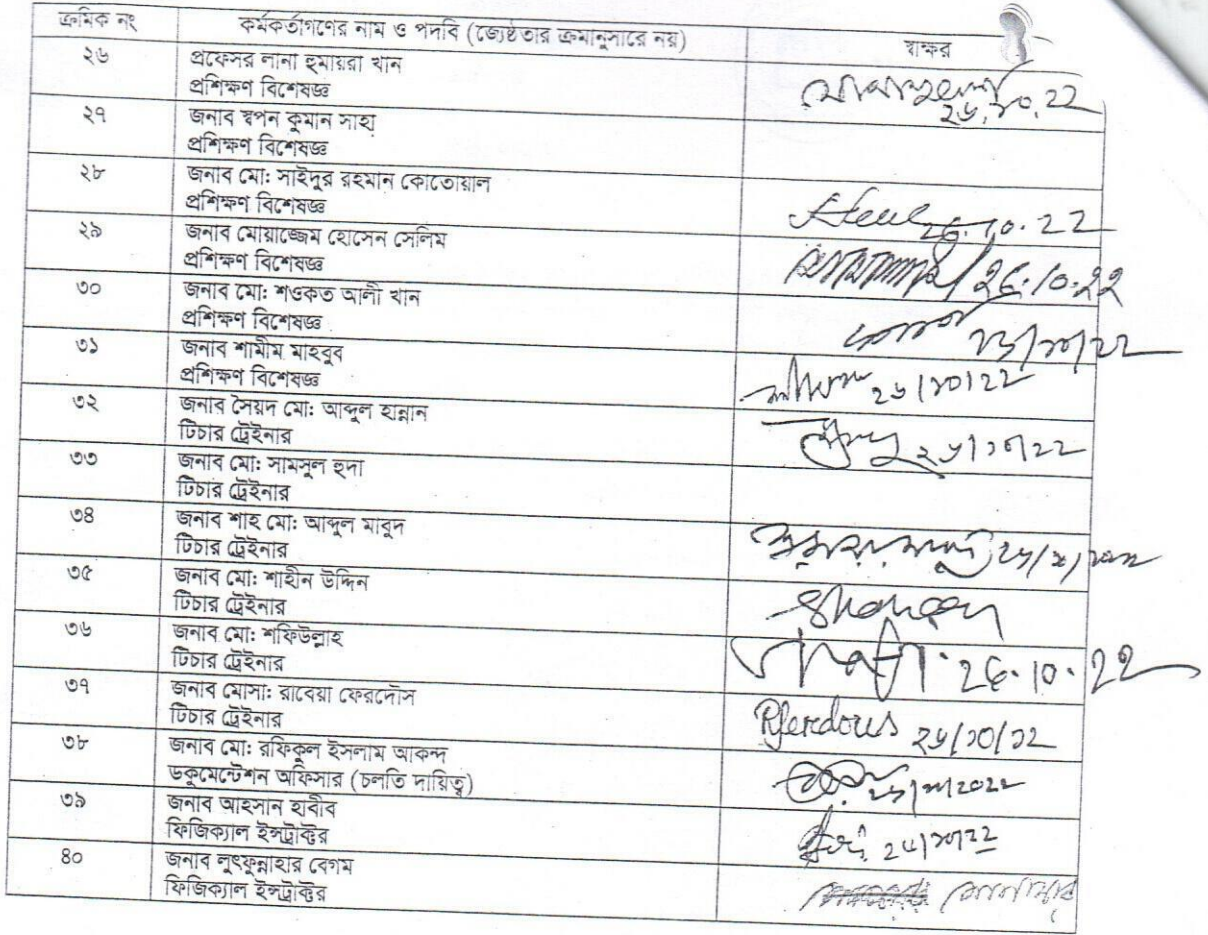 ক্রমিক নং কর্মকর্তাগণের নাম ও পদবি (জ্যেষ্ঠতার ক্রমানুসারে নয়) স্বাক্ষর
২৬ প্রফেসর লানা হুমায়রা খান
প্রশিক্ষণ বিশেষজ্ঞ
২৬.১০.২২
২৭ জনাব স্বপন কুমান সাহা
প্রশিক্ষণ বিশেষজ্ঞ
২৮ জনাব মো: সাইদুর রহমান কোতোয়াল
প্রশিক্ষণ বিশেষজ্ঞ
26.10.22
২৯ জনাব মোয়াজ্জেম হোসেন সেলিম
প্রশিক্ষণ বিশেষজ্ঞ
26.10.22
৩০ জনাব মো: শওকত আলী খান
প্রশিক্ষণ বিশেষজ্ঞ
৩১ জনাব শামীম মাহবুব
প্রশিক্ষণ বিশেষজ্ঞ
২৬/১০/২২
৩২ জনাব সৈয়দ মো: আব্দুল হান্নান
টিচার ট্রেইনার
২৬/১০/২২
৩৩ জনাব মো: সামসুল হুদা
টিচার ট্রেইনার
৩৪ জনাব শাহ মো: আব্দুল মাবুদ
টিচার ট্রেইনার
৩৫ জনাব মো: শাহীন উদ্দিন
টিচার ট্রেইনার
Shaheen
৩৬ জনাব মো: শফিউল্লাহ
টিচার ট্রেইনার
26.10.22
৩৭ জনাব মোসা: রাবেয়া ফেরদৌস
টিচার ট্রেইনার
RFerdous ২৬/১০/২২
৩৮ জনাব মো: রফিকুল ইসলাম আকন্দ
ডকুমেন্টেশন অফিসার (চলতি দায়িত্ব)
৩৯ জনাব আহসান হাবীব
ফিজিক্যাল ইন্সট্রাক্টর
৪০ জনাব লুৎফুন্নাহার বেগম
ফিজিক্যাল ইন্সট্রাক্টর